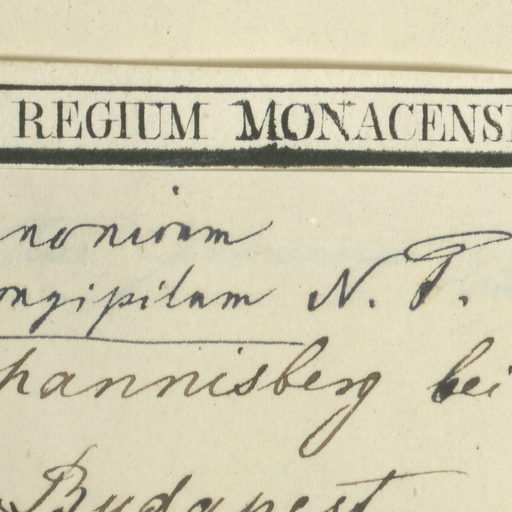 REGIUM MONACENS
nonicum
ongipilum N. P.
hannisberg bei
Budapest